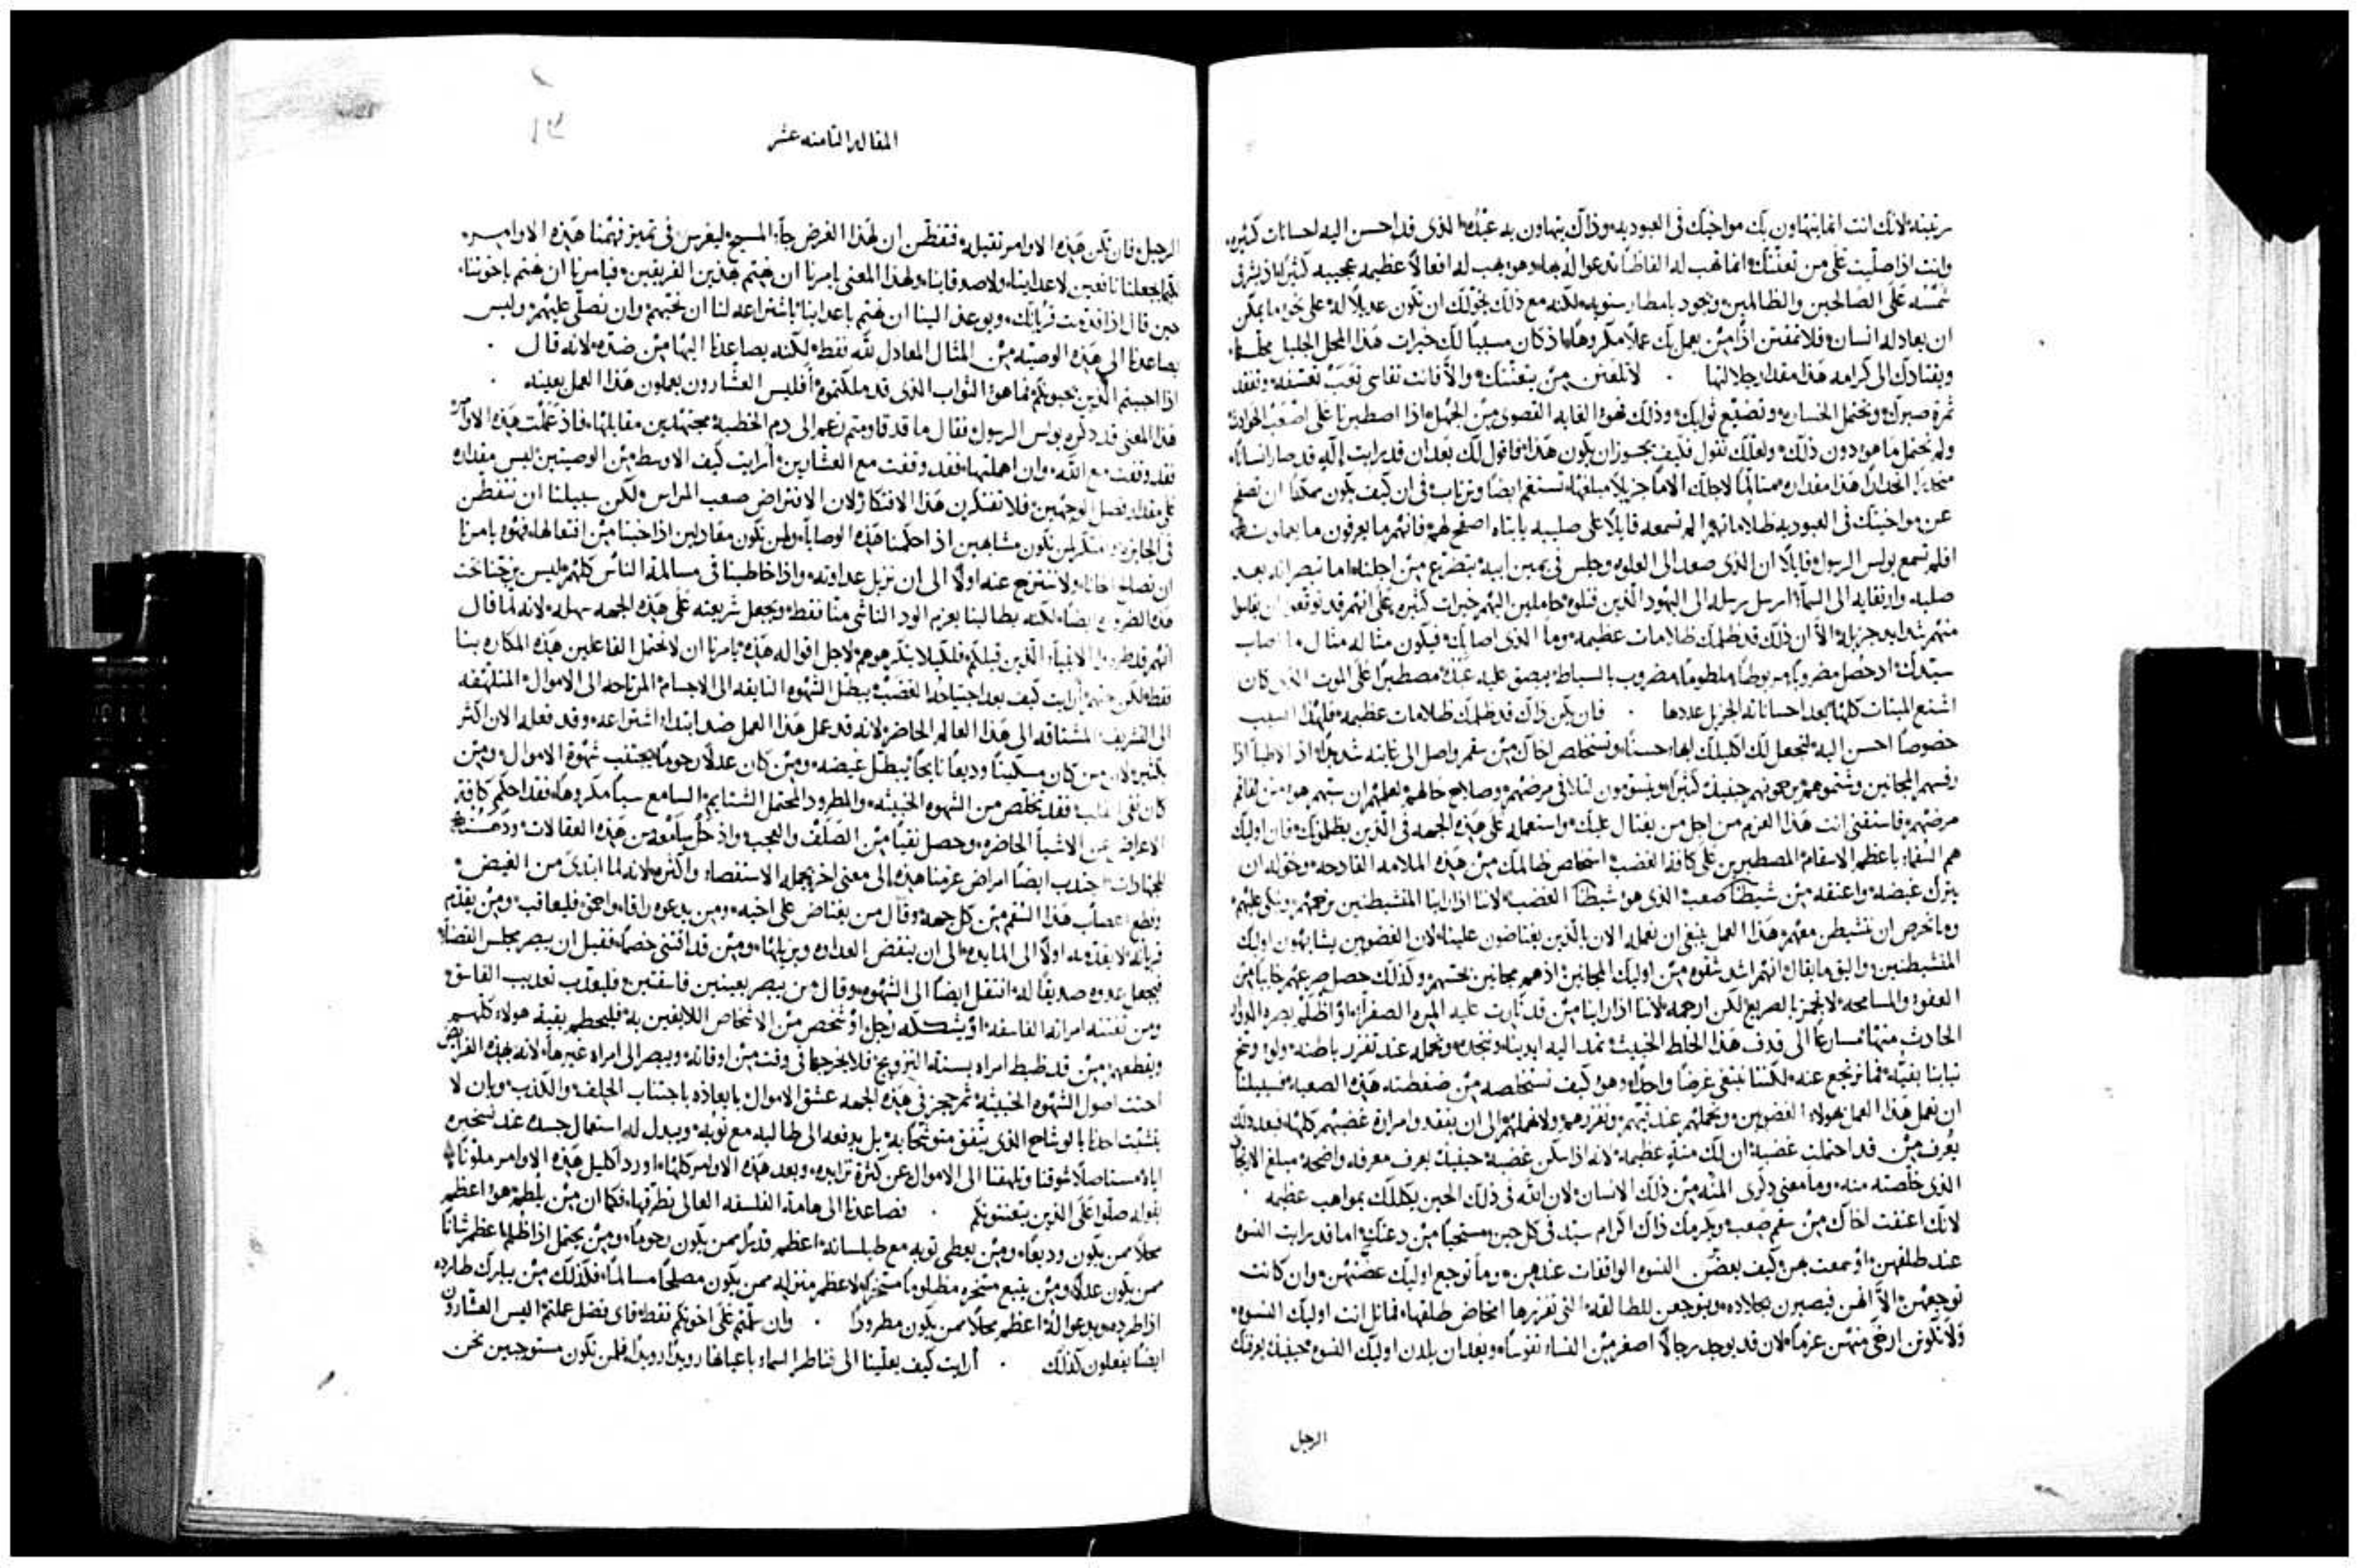 رتبته لانك انت انما يتهاون بك مواخيك في العبوديه وذاك يتهاون به عبده الذي قد احسن اليه احسانات كثيره
وانت اذا صليت على من تعنتك انما تهب له الفاظا تدعوا له بها وهو يهب له افعالا عظيمه عجيبه كثيرا اذ يشرق
شمسه على الصالحين والظالمين ويجود بامطار سنويه لكنه مع ذلك يخولك ان تكون عديلا له على نحو ما يمكن
ان يعادله انسان فلا تمقتن اذا من يعمل بك عملا مكروها اذ كان مسببا لك خيرات هذا المحل الجليل محلها
ويقتادك الى كرامه هذا مقدار جلالتها . لا تلعنن من يتعنتك والا فانت تقاسي تعب تعسفه وتفقد
ثمرة صبرك وتحتمل الخساره وتضيع ثوابك وذلك فهو الغايه القصوى من الجهل اذا اصطبرنا على اصعب الحوادث
ولم نحتمل ما هو دون ذلك ولعلك تقول فكيف يجوز ان يكون هذا فاقول لك بعد ان قد رايت اله قد صار انسانا
منحدرا انحدارا هذا مقداره متالما لاجلك الاما جزيلا مبلغها تستفهم ايضا وترتاب في ان كيف يكون ممكنا ان تصفح
عن مواخيك في العبوديه ظلاماتهم الم تسمعه قايلا على صليبه يا ابتاه اصفح لهم فانهم ما يعرفون ما يعملون
افلم تسمع بولس الرسول قايلا ان الذي صعد الى العلو وجلس في يمين ابيه يتضرع من اجلنا اما تبصر انه بعد
صلبه وارتقايه الى السما ارسل رسله الى اليهود الذين قتلوه حاملين اليهم خيرات كثيره على انهم قد توقعوا ان يقاسوا
منهم شدايد جزيله الا ان ذلك قد ظلمك ظلامات عظيمه وما الذي اصابك فيكون مثاله مثال ما اصاب
سيدك اذ حصل مضروبا مربوطا ملطوما مضروب بالسياط يبصق عليه عبده مصطبرا على الموت الذي كان
اشنع الميتات كلها بعد احساناته الجزيل عددها . فان يكن ذاك قد ظلمك ظلامات عظيمه فلهذا السبب
خصوصا احسن اليه لتجعل لك اكليلك ابهاء حسنا وتستخلص اخاك من سقم واصل الى غايته شديدا اذ الاطبا اذا
رفسهم المجانين وشتموهم يرحمونهم حينيذ كثيرا ويستعدون لتلافي مرضهم وصلاح حالهم لعلمهم ان سبهم هو من تفاقم
مرضهم فاستفتي انت هذا العزم من اجل من يغتال عليك واستعمله على هذه الجهه في الذين يظلمونك فان اوليك
هم السقماء باعظم الاسقام المصطبرين على كافة الغضب استخلص ظالمك من هذه الملامه الفادحه وخوله ان
يترك غيضه واعتقه من شيطان صعب الذي هو شيطان الغضب لاننا اذا راينا المتشيطنين نرحمهم ونبكي عليهم
وما نحرص ان نتشيطن معهم هذا العمل ينبغي ان نعمله الان بالذين يغتاضون علينا لان الغضوبين يشابهون اوليك
المتشيطنين واليق ما يقال انهم اشد شقوه من اوليك المجانين اذ هم مجانين بحسهم ولذلك حصل صرعهم خايبا من
العفو والمسامحه لا تجهز بالصريع لكن ارحمه لاننا اذا راينا من قد ثارت عليه المره الصفرا او اظلم بصره الدوار
الحادث منها مسارعا الى قدف هذا الخلط الخبيث نمد اليه ايدينا ونجده ونحمله عند تفزر باطنه ولو وسخ
ثيابنا بقيه فما نرتجع عنه لكننا نبتغي غرضا واحدا وهو كيف نستخلصه من ضغطته هذه الصعبه فسبيلنا
ان نعمل هذا العمل بهولاء الغضوبين ونحملهم عند قيهم وتفزرهم ولا نهملهم الى ان يفقدوا مرارة غضبهم كلها فبعد ذلك
يعرف من قد احتملت غضبه ان لك منة عظيمه لانه اذا سكن غضبه حينيذ يعرف معرفه واضحه مبلغ الارتجاف
الذي خلصته منه وما معنى ذكري المنه من ذلك الانسان لان الله في ذلك الحين يكللك بمواهب عظيمه .
لانك اعتقت اخاك من سقم صعب ويكرمك ذاك اكرام سيد في كل حين مستحيا من دعتك اما قد رايت النسوه
عند طلقهن او سمعت بهن كيف يعضض النسوه الواقفات عندهن وما توجع اوليك عضتهن وان كانت
توجعهن الا انهن فيصبرن بجلاده ويتوجعن للطالقه التي تفزرها امخاض طلقها فماثل انت اوليك النسوه
ولا تكونن ارخى منهن عزما لان قد يوجد رجالا اصغر من النساء نفوسا وبعد ان يلدن اوليك النسوه حينيذ يعرفنك
الرجل
المقاله الثامنه عشر
١٣
الرجل فان تكن هذه الاوامر ثقيله فتفطن ان لهذا الغرض جاء المسيح ليغرس في تمييز فهمنا هذه الاوامر
لكيما يجعلنا نافعين لاعداينا ولاصدقاينا ولهذا المعنى يامرنا ان نهتم بهذين الفريقين فيامرنا ان نهتم باخوتنا
حين قال اذا قدمت قربانك ويوعز الينا ان نهتم باعداينا باشتراعه لنا ان نحبهم وان نصلي عليهم وليس
يصاعدنا الى هذه الوصيه من المثال المعادل لله فقط لكنه يصاعدنا اليها من ضده لانه قال .
اذا احببتم الذين يحبونكم فما هو الثواب الذي قد ملكتموه افليس العشارون يعملون هذا العمل بعينه .
هذا المعنى قد ذكره بولس الرسول فقال ما قد قاومتم بعد الى دم الخطيه مجتهدين مقابلتها فاذ عملت هذه الاوامر
فقد وقفت مع الله وان اهملتها فقد وقفت مع العشارين ارايت كيف الاوسط من الوصيتين ليس مقداره
على مقدار فصل الوجهين فلا تفتكرن هذا الافتكار لان الافتراض صعب المراس ولكن سبيلنا ان نتفطن
في الجايزه ونفتكر لمن نكون مشابهين اذا احكمنا هذه الوصايا ولمن نكون معادلين اذا خبنا من افتعالها فهو يامرنا
ان نصالح اخانا ولا ننتزح عنه اولا الى ان نزيل عداوته واذا خاطبنا في مسالمة الناس كلهم ليس يزجنا تحت
هذه الضروره ايضا لكنه يطالبنا بعزم الود الناشي منا فقط ويجعل شريعته على هذه الجهه سهله لانه لما قال
انهم قد طردوا الانبياء الذين قبلكم فلكيلا يكرهوهم لاجل اقواله هذه يامرنا ان لا نحتمل الفاعلين هذه المكاره بنا
فقط لكن نحبهم ارايت كيف بعد اجتياحه الغضب يبطل الشهوه التايقه الى الاجسام المرتاحه الى الاموال المتلهفه
الى التشريف المشتاقه الى هذا العالم الحاضر لانه قد عمل هذا العمل ضد ابتداء اشتراعه وقد فعله الان اكثر
بكثير لان من كان مسكينا وديعا نايحا يبطل غيضه ومن كان عدلا رحوما يجتنب شهوة الاموال ومن
كان نقي القلب فقد تخلص من الشهوه الخبيثه والمطرود المحتمل الشتايم السامع سبا مكروها فقد احكم كافة
الاعراض عن الاشيا الحاضره وحصل نقيا من الصلف والعجب
وقطع اعصاب هذا السقم من كل جهه وقال من يغتاض على اخيه ومن يدعوه راقا واحمق فليعاقب ومن يقدم
قربانه لا يقدمه اولا الى المايده الى ان ينقض العداوه ويزيلها ومن قد اقتنى خصما فقبل ان يبصر مجلس القضا
فيجعل عدوه صديقا له انتقل ايضا الى الشهوه وقال من يبصر بعينين فاسقتين فليعذب تعذيب الفاسق
ومن تفتنه امراه الفاسقه او يشككه رجل او شخص من الاشخاص اللايقين به فليحطم بقية هولاء كلهم
ويقطعهم من قد ظبط امراه بسنة التزويج فلا يخرجها في وقت من اوقاته ويبصر الى امراه غيرها لانه بهذه الفرايض
اجتث اصول الشهوه الخبيثه ثم حجز في هذه الجهه عشق الاموال بايعازه باجتناب الحلف والكذب وبان لا
يتشبث احدنا بالوشاح الذي يتفق متوشحا به بل يدفعه الى طالبه مع ثوبه ويبدل له استعمال جسده عند تسخيره
اياه مستاصلا شوقنا وتلهفنا الى الاموال عن كثرة تزايده وبعد هذه الاوامر كلها اورد اكليل هذه الاوامر ملونا
بقوله صلوا على الذين يتعنتونكم . فصاعدنا الى هامة الفلسفه العالي تطرفها فكما ان من يلطم هو اعظم
محلا ممن يكون وديعا ومن يعطي ثوبه مع طيلسانه اعظم قدرا ممن يكون رحوما ومن يحتمل اذا ظلم اعظم شانا
ممن يكون عدلا ومن يتبع مسخره مظلوما مسخرا اعظم منزله ممن يكون مصلحا مسالما فكذلك من يبارك طارده
اذا طرد ويدعوا له اعظم محلا ممن يكون مطرودا . وان سلمتم على اخوتكم فقط فاي فضل عملتم اليس العشارون
ايضا يفعلون كذلك . ارايت كيف يعلينا الى قناطر السماء باعيانها رويدا رويدا فلمن نكون مستوجبين نحن